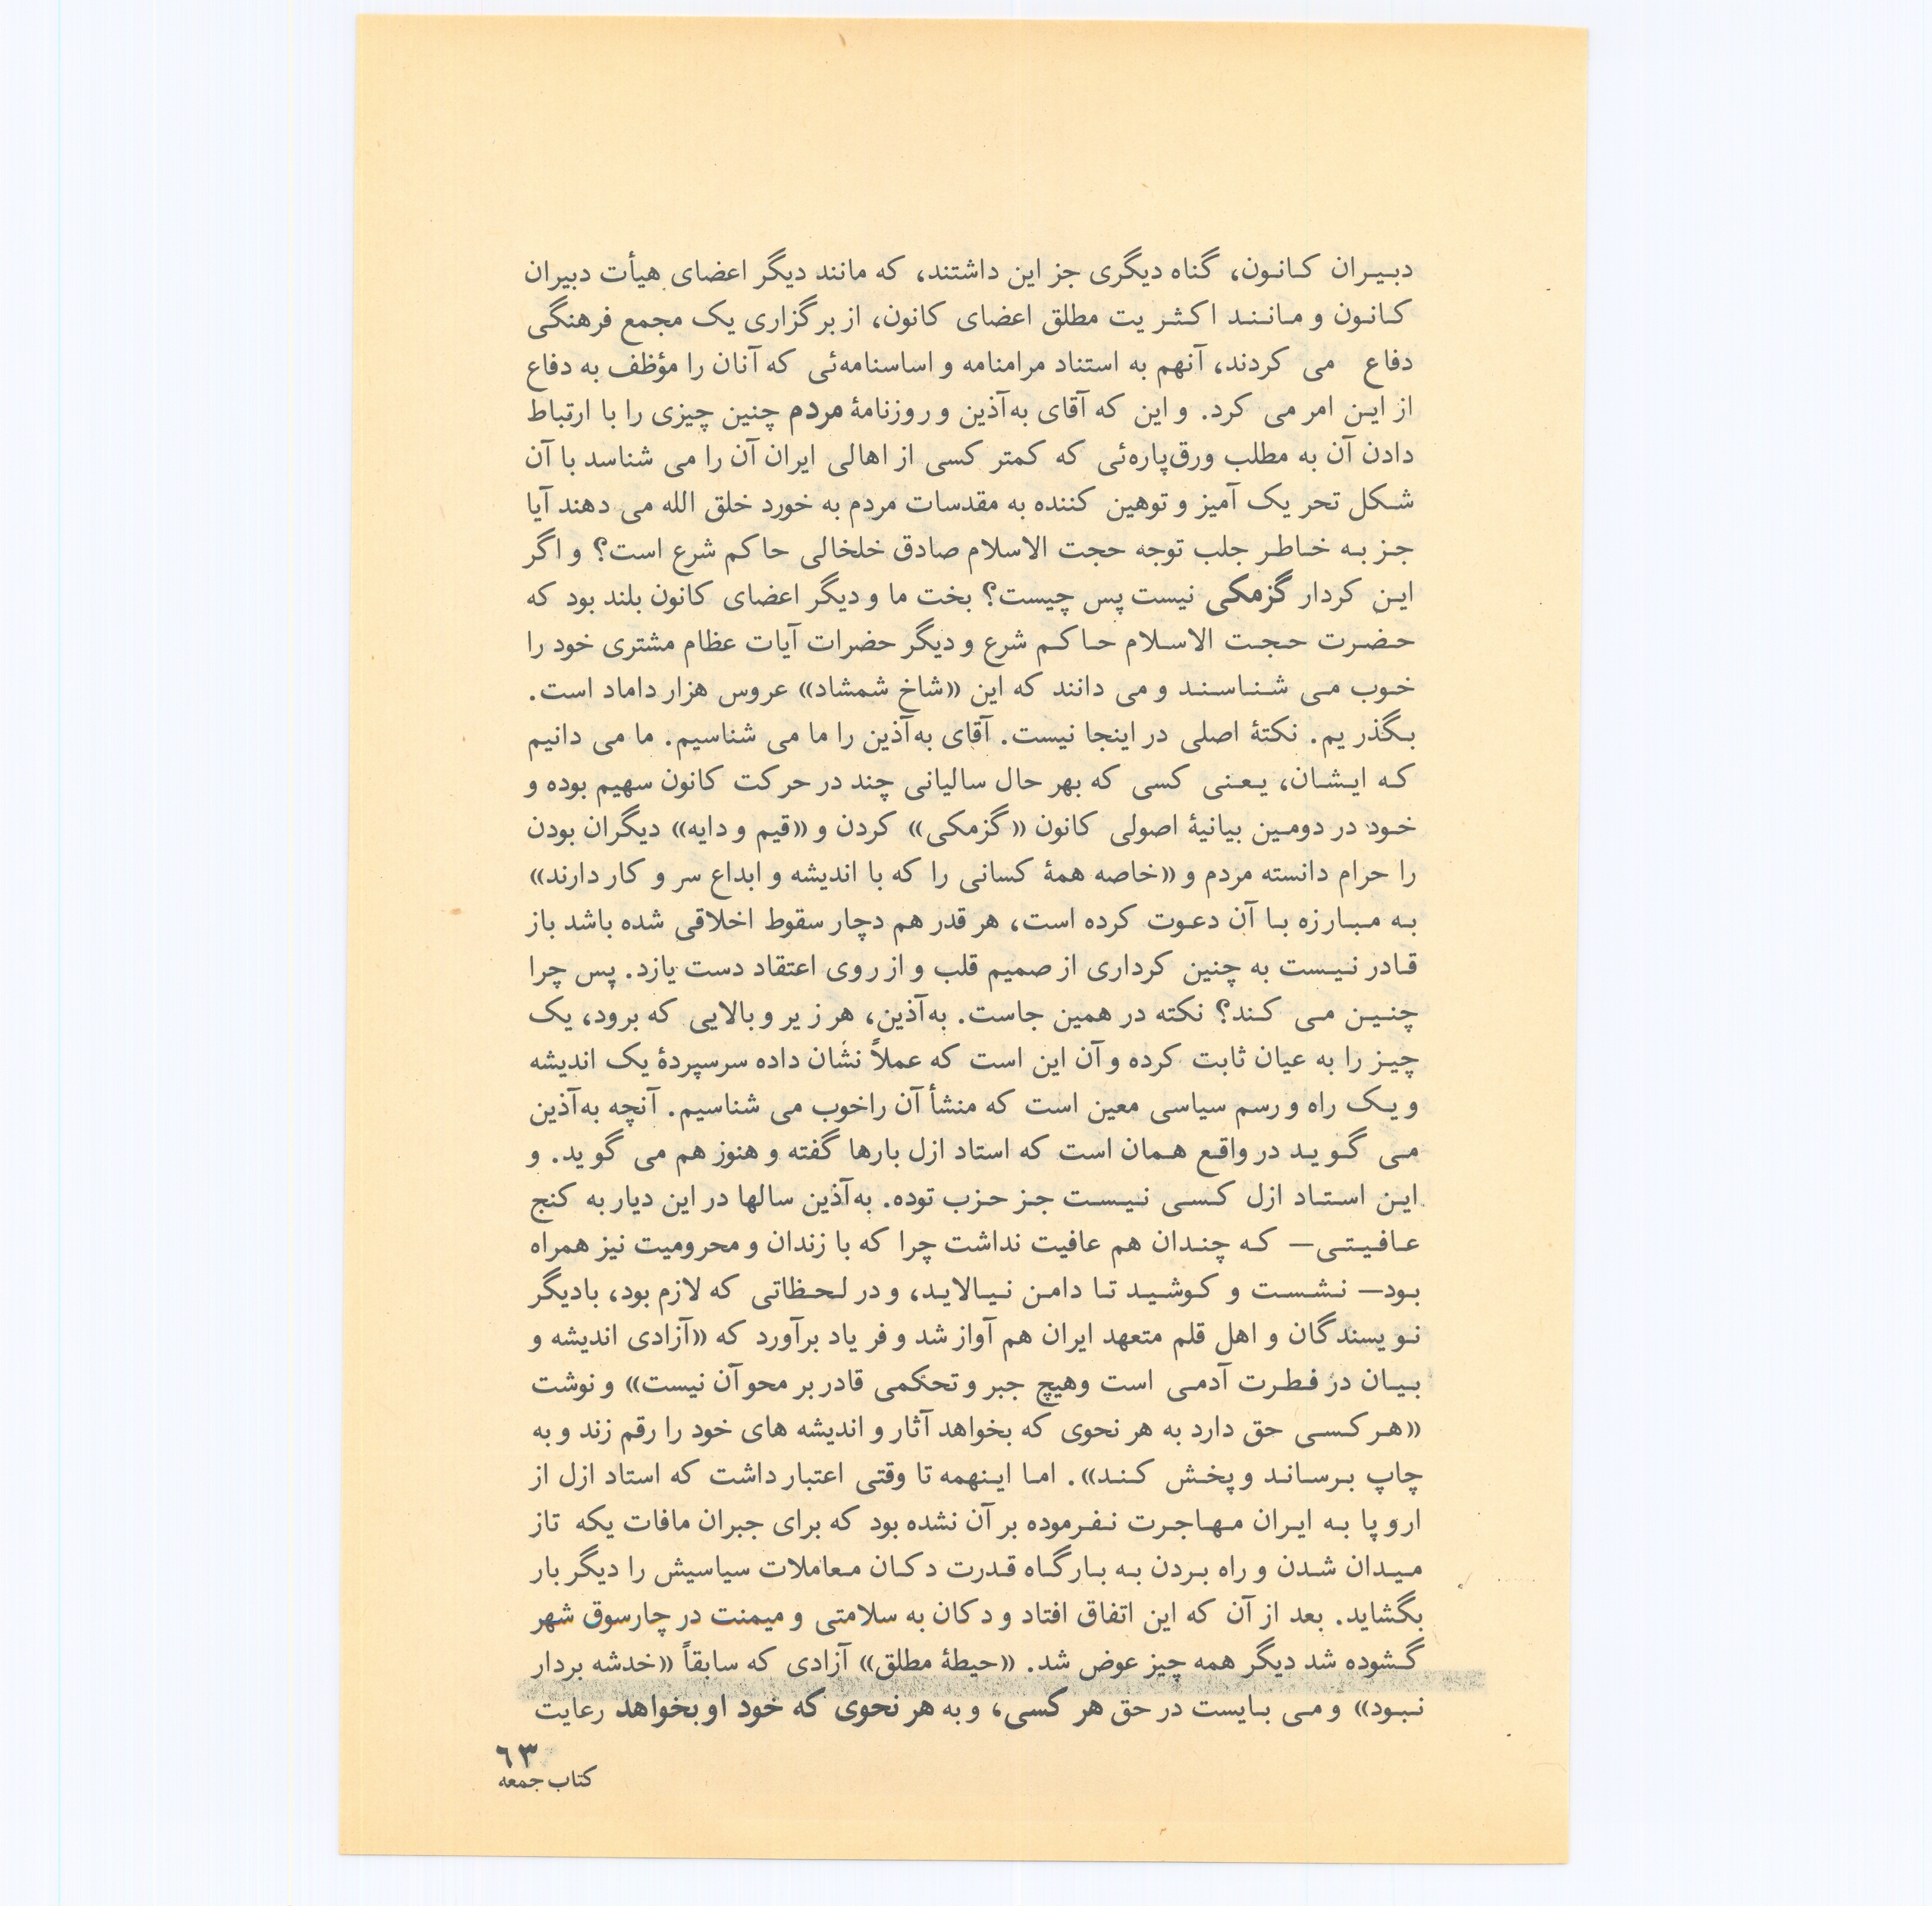 دبیران کانون، گناه دیگری جز این داشتند، که مانند دیگر اعضای هیأت دبیران
کانون و مانند اکثریت مطلق اعضای کانون، از برگزاری یک مجمع فرهنگی
دفاع می کردند، آنهم به استناد مرامنامه و اساسنامه‌ئی که آنان را مؤظف به دفاع
از این امر می کرد. و این که آقای به‌آذین و روزنامهٔ مردم چنین چیزی را با ارتباط
دادن آن به مطلب ورق‌پاره‌ئی که کمتر کسی از اهالی ایران آن را می شناسد با آن
شکل تحریک آمیز و توهین کننده به مقدسات مردم به خورد خلق الله می دهند آیا
جز به خاطر جلب توجه حجت الاسلام صادق خلخالی حاکم شرع است؟ و اگر
این کردار گزمکی نیست پس چیست؟ بخت ما و دیگر اعضای کانون بلند بود که
حضرت حجت الاسلام حاکم شرع و دیگر حضرات آیات عظام مشتری خود را
خوب می شناسند و می دانند که این «شاخ شمشاد» عروس هزار داماد است.
بگذریم. نکتهٔ اصلی در اینجا نیست. آقای به‌آذین را ما می شناسیم. ما می دانیم
که ایشان، یعنی کسی که بهر حال سالیانی چند در حرکت کانون سهیم بوده و
خود در دومین بیانیهٔ اصولی کانون «گزمکی» کردن و «قیم و دایه» دیگران بودن
را حرام دانسته مردم و «خاصه همهٔ کسانی را که با اندیشه و ابداع سر و کار دارند»
به مبارزه با آن دعوت کرده است، هر قدر هم دچار سقوط اخلاقی شده باشد باز
قادر نیست به چنین کرداری از صمیم قلب و از روی اعتقاد دست یازد. پس چرا
چنین می کند؟ نکته در همین جاست. به‌آذین، هر زیر و بالایی که برود، یک
چیز را به عیان ثابت کرده و آن این است که عملاً نشان داده سرسپردهٔ یک اندیشه
و یک راه و رسم سیاسی معین است که منشأ آن راخوب می شناسیم. آنچه به‌آذین
می گوید در واقع همان است که استاد ازل بارها گفته و هنوز هم می گوید. و
این استاد ازل کسی نیست جز حزب توده. به‌آذین سالها در این دیار به کنج
عافیتی— که چندان هم عافیت نداشت چرا که با زندان و محرومیت نیز همراه
بود— نشست و کوشید تا دامن نیالاید، و در لحظاتی که لازم بود، بادیگر
نویسندگان و اهل قلم متعهد ایران هم آواز شد و فریاد برآورد که «آزادی اندیشه و
بیان در فطرت آدمی است وهیچ جبر و تحکمی قادر بر محو آن نیست» و نوشت
«هر کسی حق دارد به هر نحوی که بخواهد آثار و اندیشه های خود را رقم زند و به
چاپ برساند و پخش کند». اما اینهمه تا وقتی اعتبار داشت که استاد ازل از
اروپا به ایران مهاجرت نفرموده بر آن نشده بود که برای جبران مافات یکه تاز
میدان شدن و راه بردن به بارگاه قدرت دکان معاملات سیاسیش را دیگر بار
بگشاید. بعد از آن که این اتفاق افتاد و دکان به سلامتی و میمنت در چارسوق شهر
گشوده شد دیگر همه چیز عوض شد. «حیطهٔ مطلق» آزادی که سابقاً «خدشه بردار
نبود» و می بایست در حق هر کسی، و به هر نحوی که خود او بخواهد رعایت
۶۳
کتاب جمعه